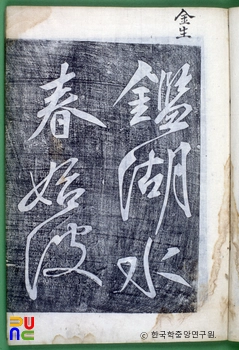 金生
鑑湖水
春始波
PUNC
© 한국학중앙연구원